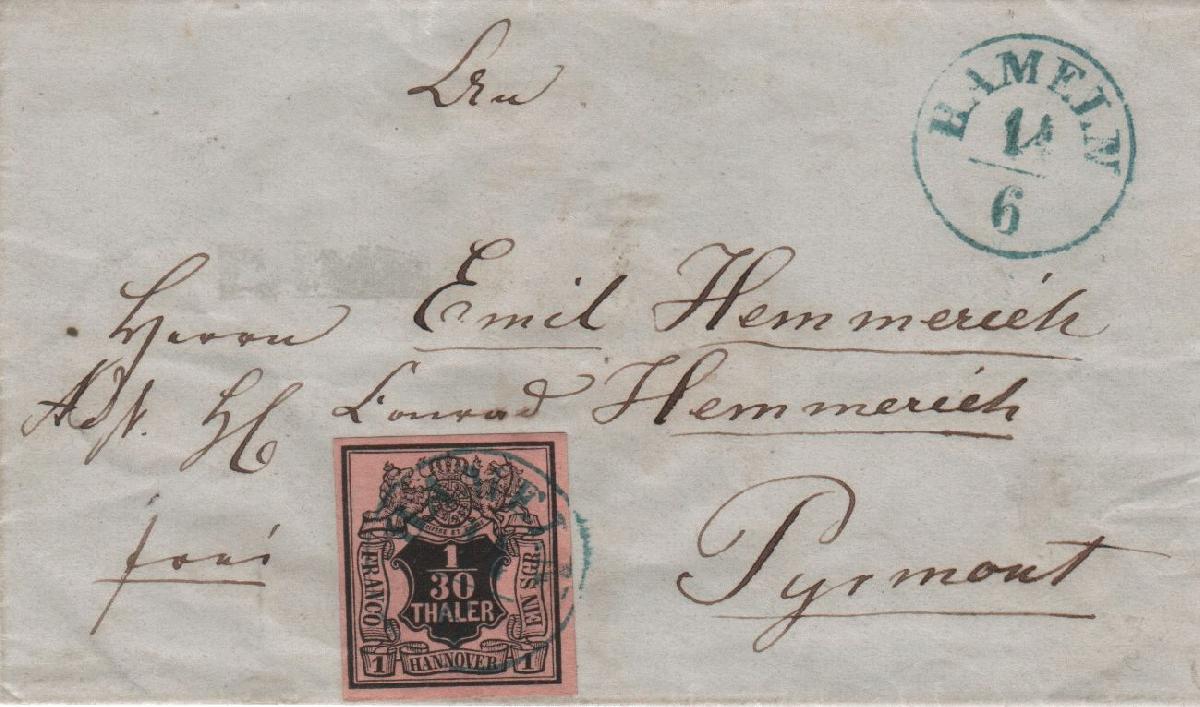 An
HAMELN
14
6
Herrn Emil Hemmerich
Adr. H Conrad Hemmerich
frei
Pyrmont
1
30
THALER
FRANCO
EIN SGR.
1 HANNOVER 1